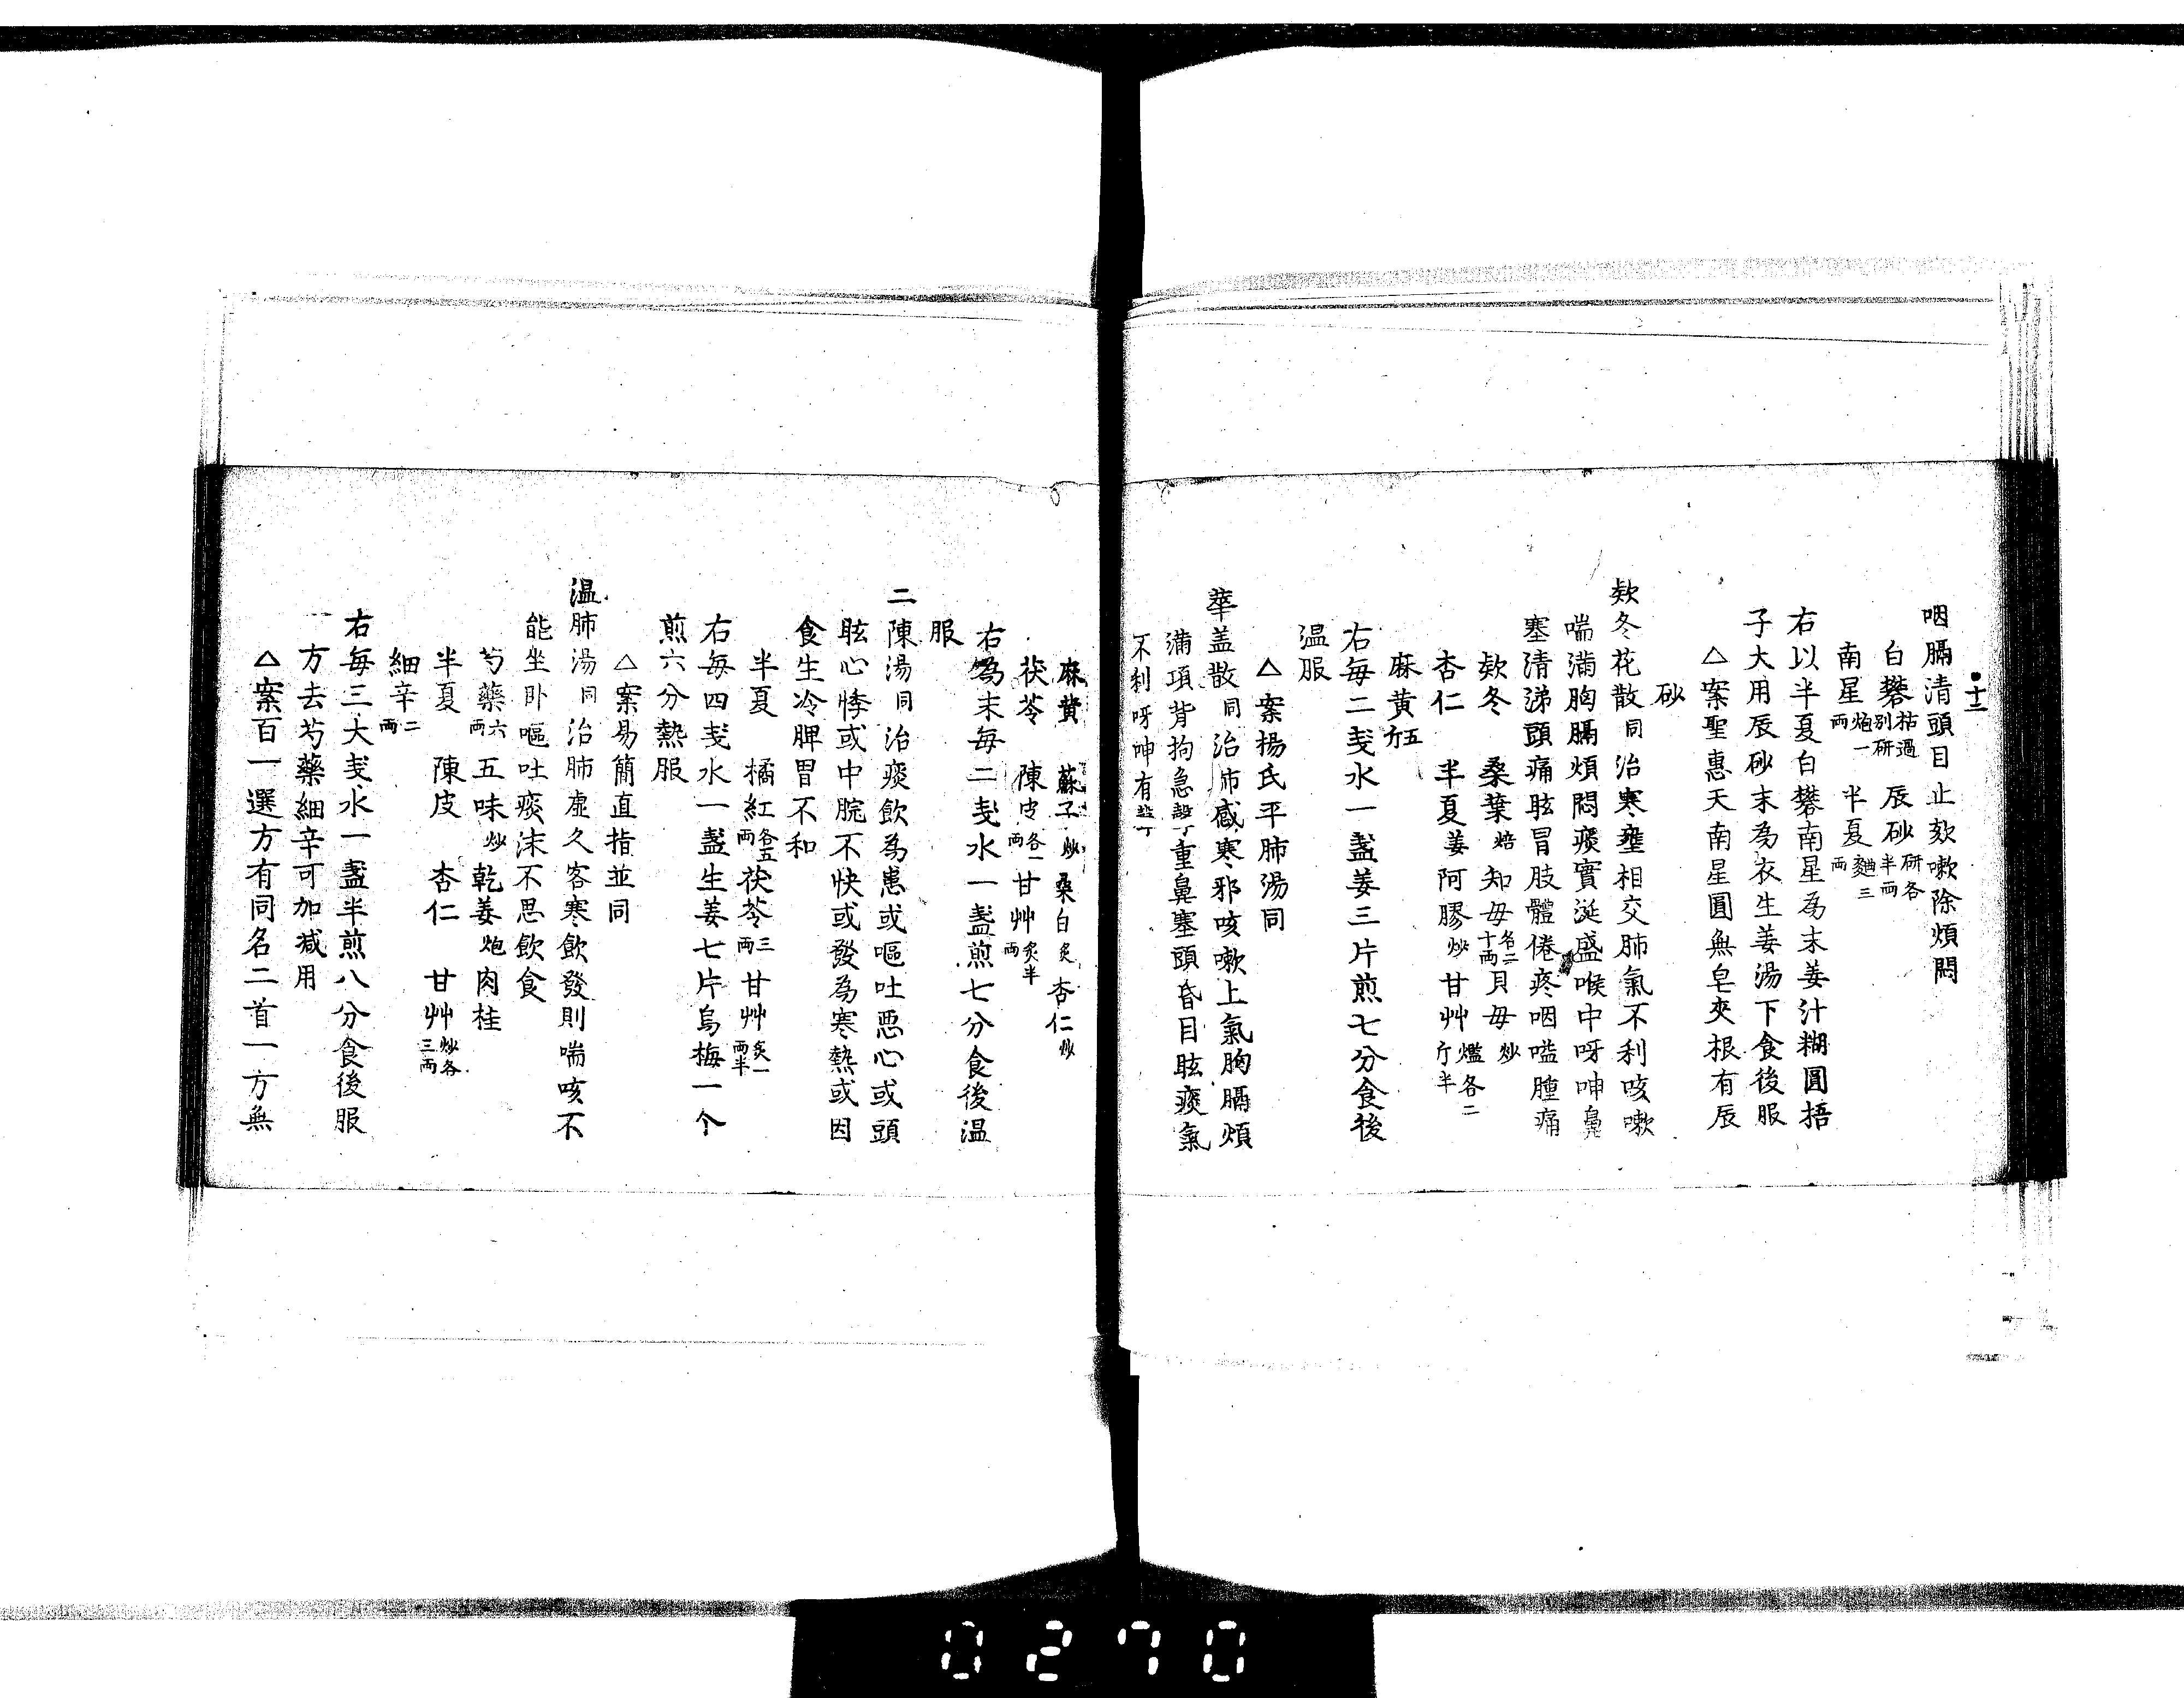 十二
咽膈清頭目止欬嗽除煩悶
白礬枯過別研 辰砂研各半両
南星炮一両 半夏麯三両
右以半夏白礬南星為末姜汁糊圓梧
子大用辰砂末為衣生姜湯下食後服
△案聖惠天南星圓無皂夾根有辰
砂
欵冬花散同治寒壅相交肺氣不利咳嗽
喘滿胸膈煩悶痰實涎盛喉中呀呻鼻
塞清涕頭痛眩冒肢體倦疼咽嗌腫痛
欵冬 桑葉焙 知母各二十両 貝母炒
杏仁 半夏姜 阿膠炒 甘艸爁各二斤半
麻黄五斤
右每二戔水一盞姜三片煎七分食後
温服
△案揚氏平肺湯同
華盖散同治肺感寒邪咳嗽上氣胸膈煩
滿項背拘急聲重鼻塞頭昏目眩痰氣
不利呀呻有聲
麻黄 蘇子炒 桑白炙 杏仁炒
茯苓 陳皮各一両 甘艸炙半両
右為末每二戔水一盞煎七分食後温
服
二陳湯同治痰飲為患或嘔吐悪心或頭
眩心悸或中脘不快或發為寒熱或因
食生冷脾胃不和
半夏 橘紅各五両 茯苓三両 甘艸炙一両半
右每四戔水一盞生姜七片烏梅一个
煎六分熱服
△案易簡直指並同
温肺湯同治肺虚久客寒飲發則喘咳不
能坐卧嘔吐痰沫不思飲食
芍藥六両 五味炒 乾姜炮 肉桂
半夏 陳皮 杏仁 甘艸炒各三両
細辛二両
右每三大戔水一盞半煎八分食後服
一方去芍藥細辛可加減用
△案百一選方有同名二首一方無
0270